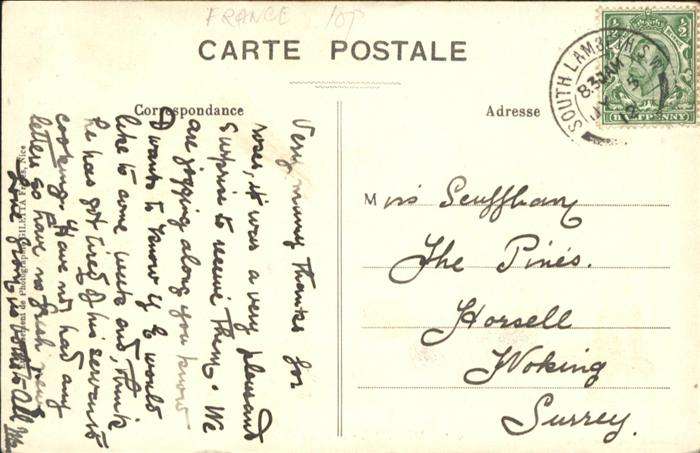 FRANCE 10P
CARTE POSTALE
Correspondance
Adresse
SOUTH LAMBETH S.W.
8.30 AM
12
½
½
HALFPENNY
Very many thanks for
roses, it was a very pleasant
surprise to receive them. We
are jogging along you know
A wants to know if E would
like to come week end, think
he has got tired of his servants
cooking. Have not had any
letters so have no fresh news
Love from us both to All
Miss Scuffham
The Pines.
Horsell
Woking
Surrey.
de Photographie GILLETTA Frères, Nice